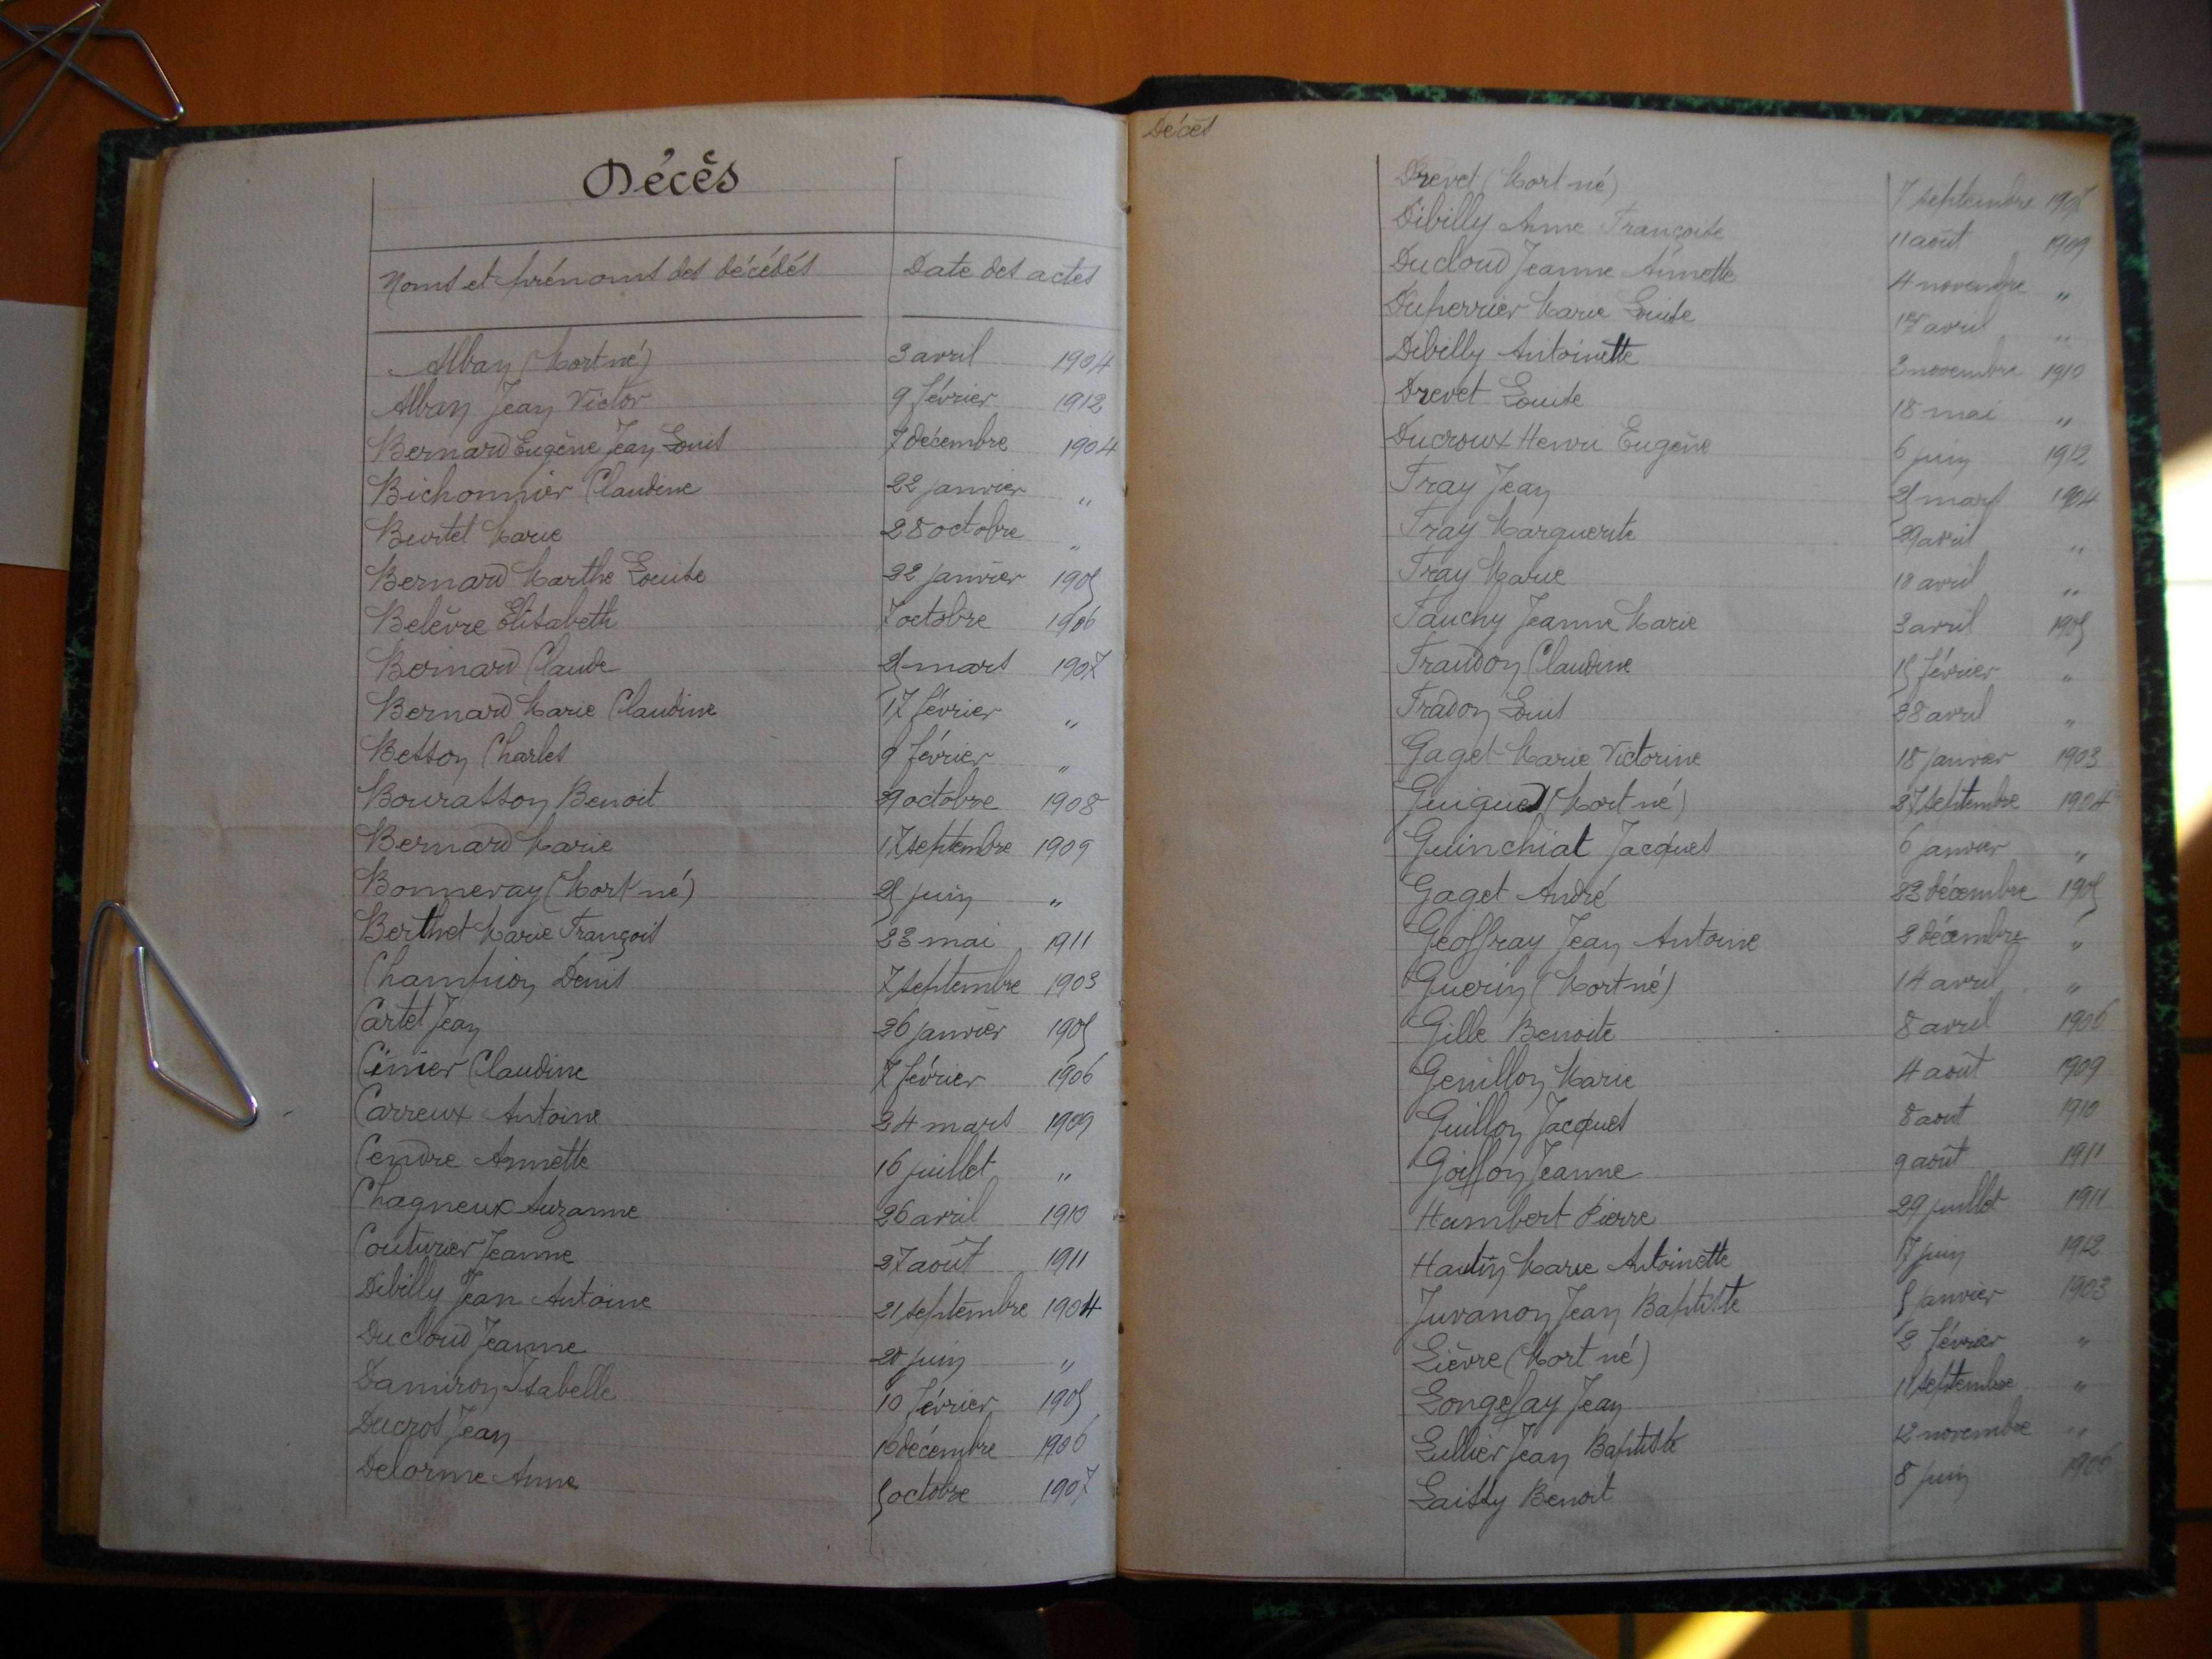 Décès
Noms et prénoms des décédés Date des actes
Alban (Mort né) 3 avril 1904
Alban Jean Victor 9 février 1912
Bernard Eugène Jean Louis 7 décembre 1904
Bichonnier Claudine 22 janvier "
Burtet Marie 28 octobre "
Bernard Marthe Louise 22 janvier 1905
Belèvre Elisabeth 7 octobre 1906
Bernard Claude 25 mars 1907
Bernard Marie Claudine 17 février "
Besson Charles 9 février "
Bourasson Benoit 29 octobre 1908
Bernard Marie 17 septembre 1909
Bonneray (Mort né) 25 juin "
Berthet Marie François 23 mai 1911
Champion Denis 7 septembre 1903
Cartet Jean 26 janvier 1905
Cinier Claudine 7 février 1906
Carreux Antoine 24 mars 1909
Cendre Annette 16 juillet "
Chagneux Suzanne 26 avril 1910
Couturier Jeanne 27 août 1911
Dibilly Jean Antoine 21 septembre 1904
Ducloud Jeanne 20 juin "
Damiron Isabelle 10 février 1905
Ducros Jean 16 décembre 1906
Delorme Anne 5 octobre 1907
Décès
Drevet (Mort né) 7 septembre
Dibilly Anne Françoise 11 août 1909
Ducloud Jeanne Annette 4 novembre "
Duperrier Marie Louise avril "
Dibilly Antoinette 3 novembre 1910
Drevet Louise 18 mai "
Ducroux Henri Eugène 6 juin 1912
Fray Jean 25 mars 1904
Fray Marguerite 29 avril "
Fray Marie 18 avril "
Fauchy Jeanne Marie 3 avril 1905
Fraudon Claudine 15 février "
Fradon Louis 28 avril "
Gaget Marie Victorine 18 janvier 1903
Guigued (Mort né) 27 septembre 1904
Guinchiat Jacques 6 janvier "
Gaget André 23 décembre 1905
Geoffray Jean Antoine 2 décembre "
Guerin (Mort né) 14 avril "
Gille Benoite 8 avril 1906
Genillon Marie 4 août 1909
Guillon Jacques 8 août 1910
Goiffon Jeanne 9 août 1911
Humbert Pierre 29 juillet 1911
Hautin Marie Antoinette 17 juin 1912
Juvanon Jean Baptiste 5 janvier 1903
Lièvre (Mort né) 2 février "
Longefay Jean 11 septembre "
Lullier Jean Baptiste 12 novembre "
Laissy Benoit 8 juin 1906